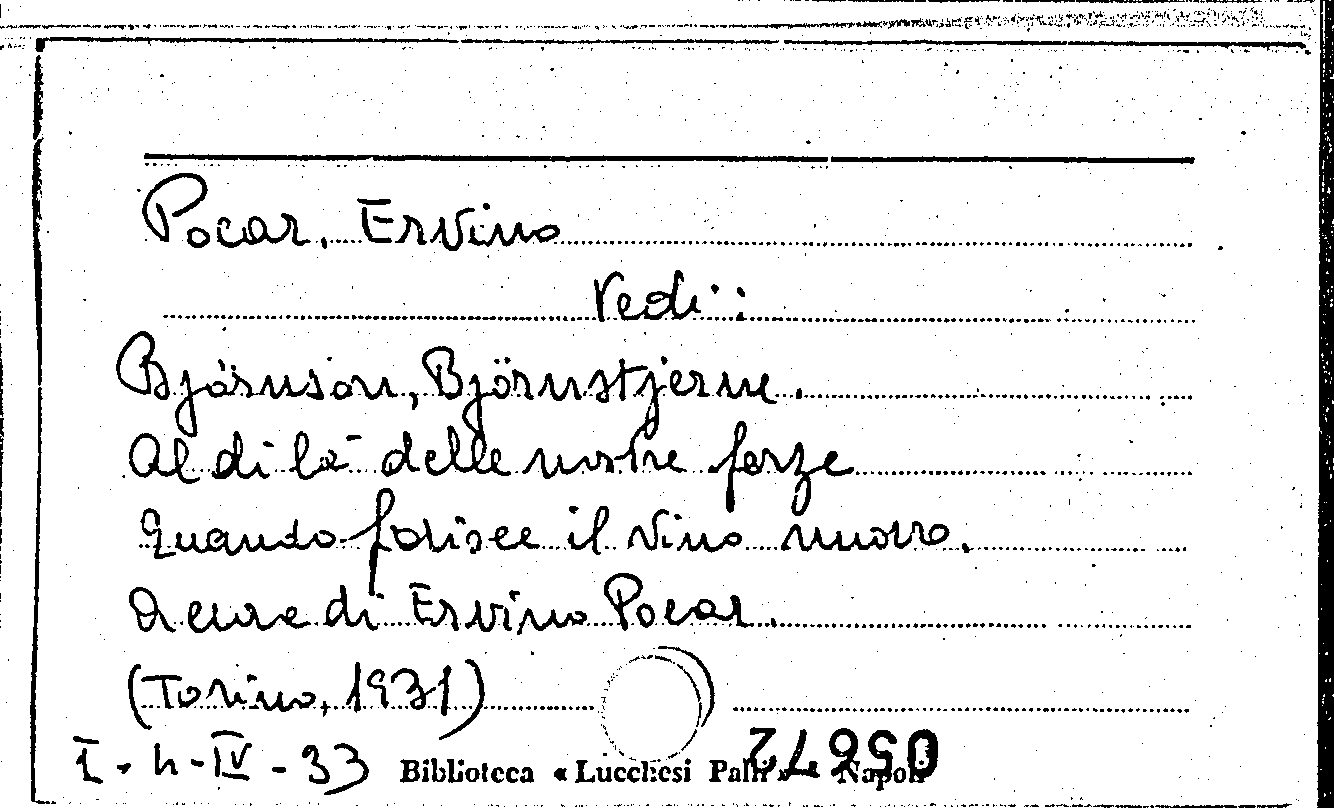 Pocar, Ervino
Vedi:
Bjórnson, Björnstjerne.
Al di là delle nostre forze
Quando fiorisce il vino nuovo.
A cura di Ervino Pocar.
(Torino, 1931)
I-h-IV-33 Biblioteca «Lucchesi Palli» - Napoli